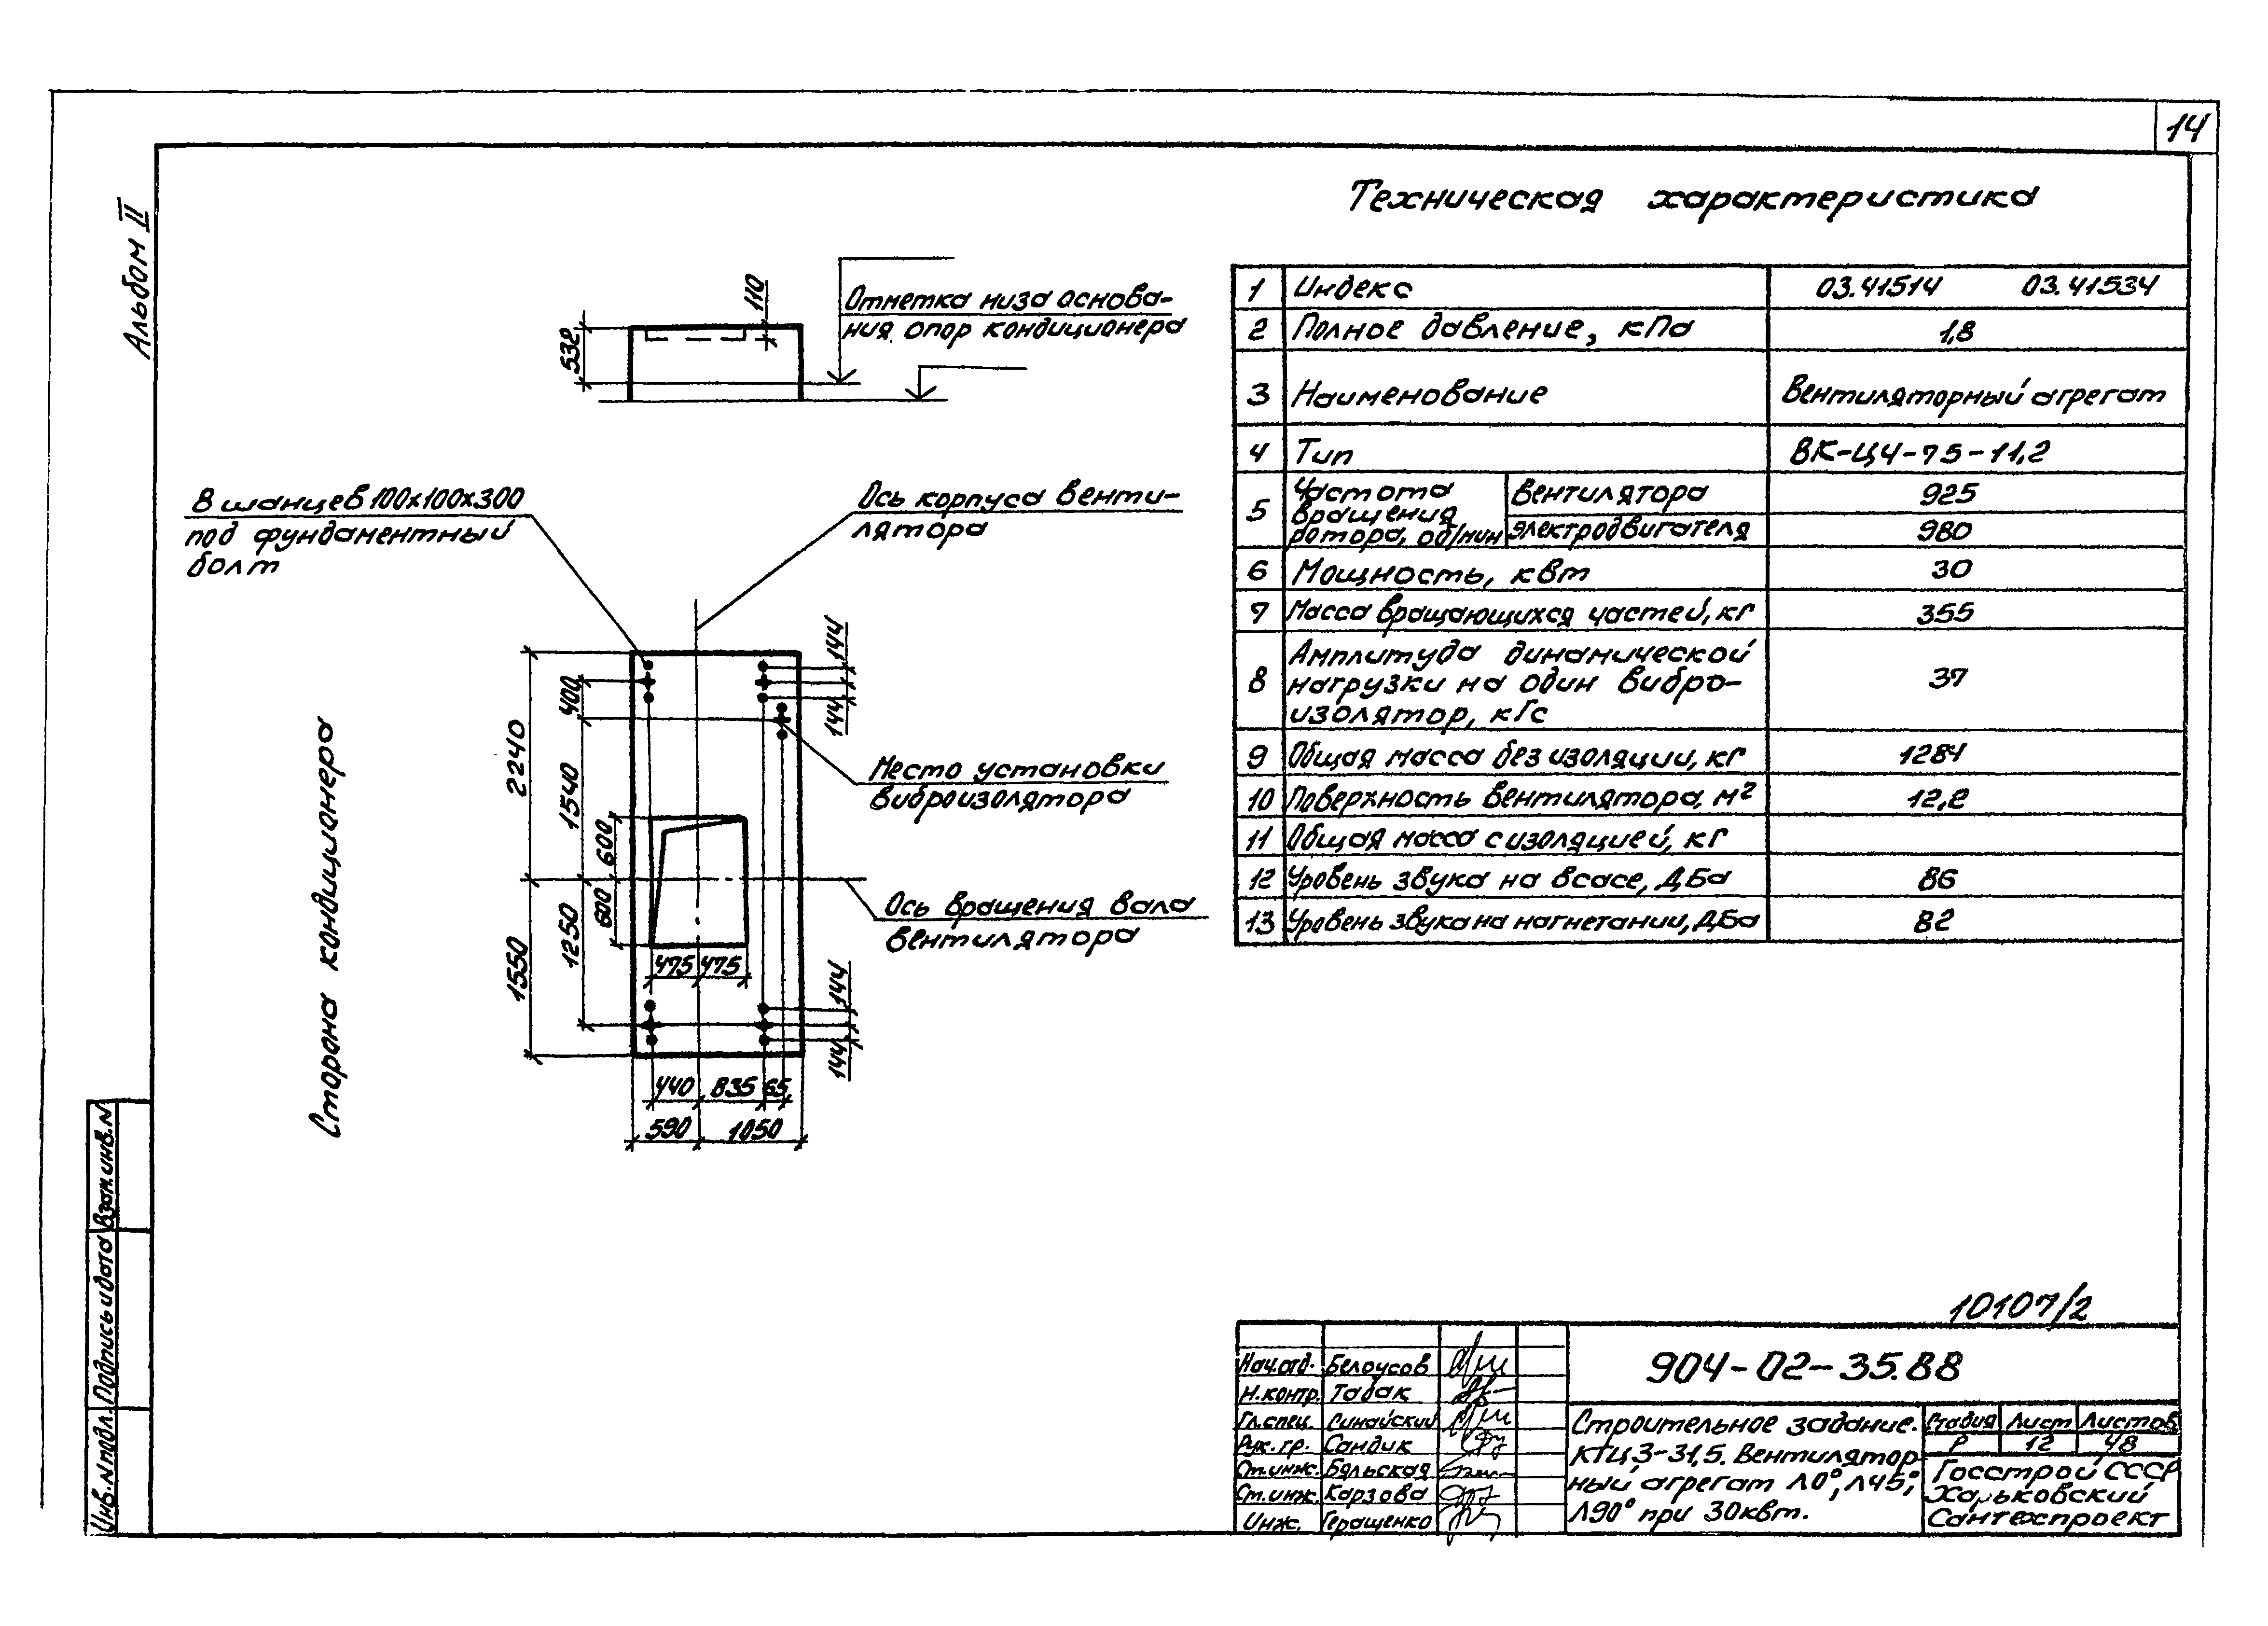 14
Альбом II
Техническая характеристика
1 Индекс 03.41514 03.41534
2 Полное давление, кПа 1,8
3 Наименование Вентиляторный агрегат
4 Тип ВК-Ц4-75-11,2
5 Частота вращения ротора, об/мин вентилятора 925
электродвигателя 980
6 Мощность, квт 30
7 Масса вращающихся частей, кг 355
8 Амплитуда динамической
нагрузки на один вибро-
изолятор, кГс 37
9 Общая масса без изоляции, кг 1284
10 Поверхность вентилятора, м² 12,2
11 Общая масса с изоляцией, кг
12 Уровень звука на всасе, ДБа 86
13 Уровень звука на нагнетании, ДБа 82
110
532
Отметка низа основа-
ния опор кондиционера
8 шанцев 100х100х300
под фундаментный
болт
Ось корпуса венти-
лятора
144
144
400
2240
1540
600
600
1250
1550
Место установки
виброизолятора
Ось вращения вала
вентилятора
475 475
144
144
440 835 65
590 1050
Сторона кондиционера
Взам.инв.N
Подпись и дата
Инв.N подл.
10107/2
904-02-35.88
Нач.отд. Белоусов
Н.контр. Табак
Гл.спец. Синайский
Рук.гр. Сандик
Ст.инж. Бяльская
Ст.инж. Карзова
Инж. Геращенко
Строительное задание.
КТЦ3-31,5. Вентилятор-
ный агрегат Л0°, Л45°,
Л90° при 30квт.
Стадия Лист Листов
Р 12 48
Госстрой СССР
Харьковский
Сантехпроект